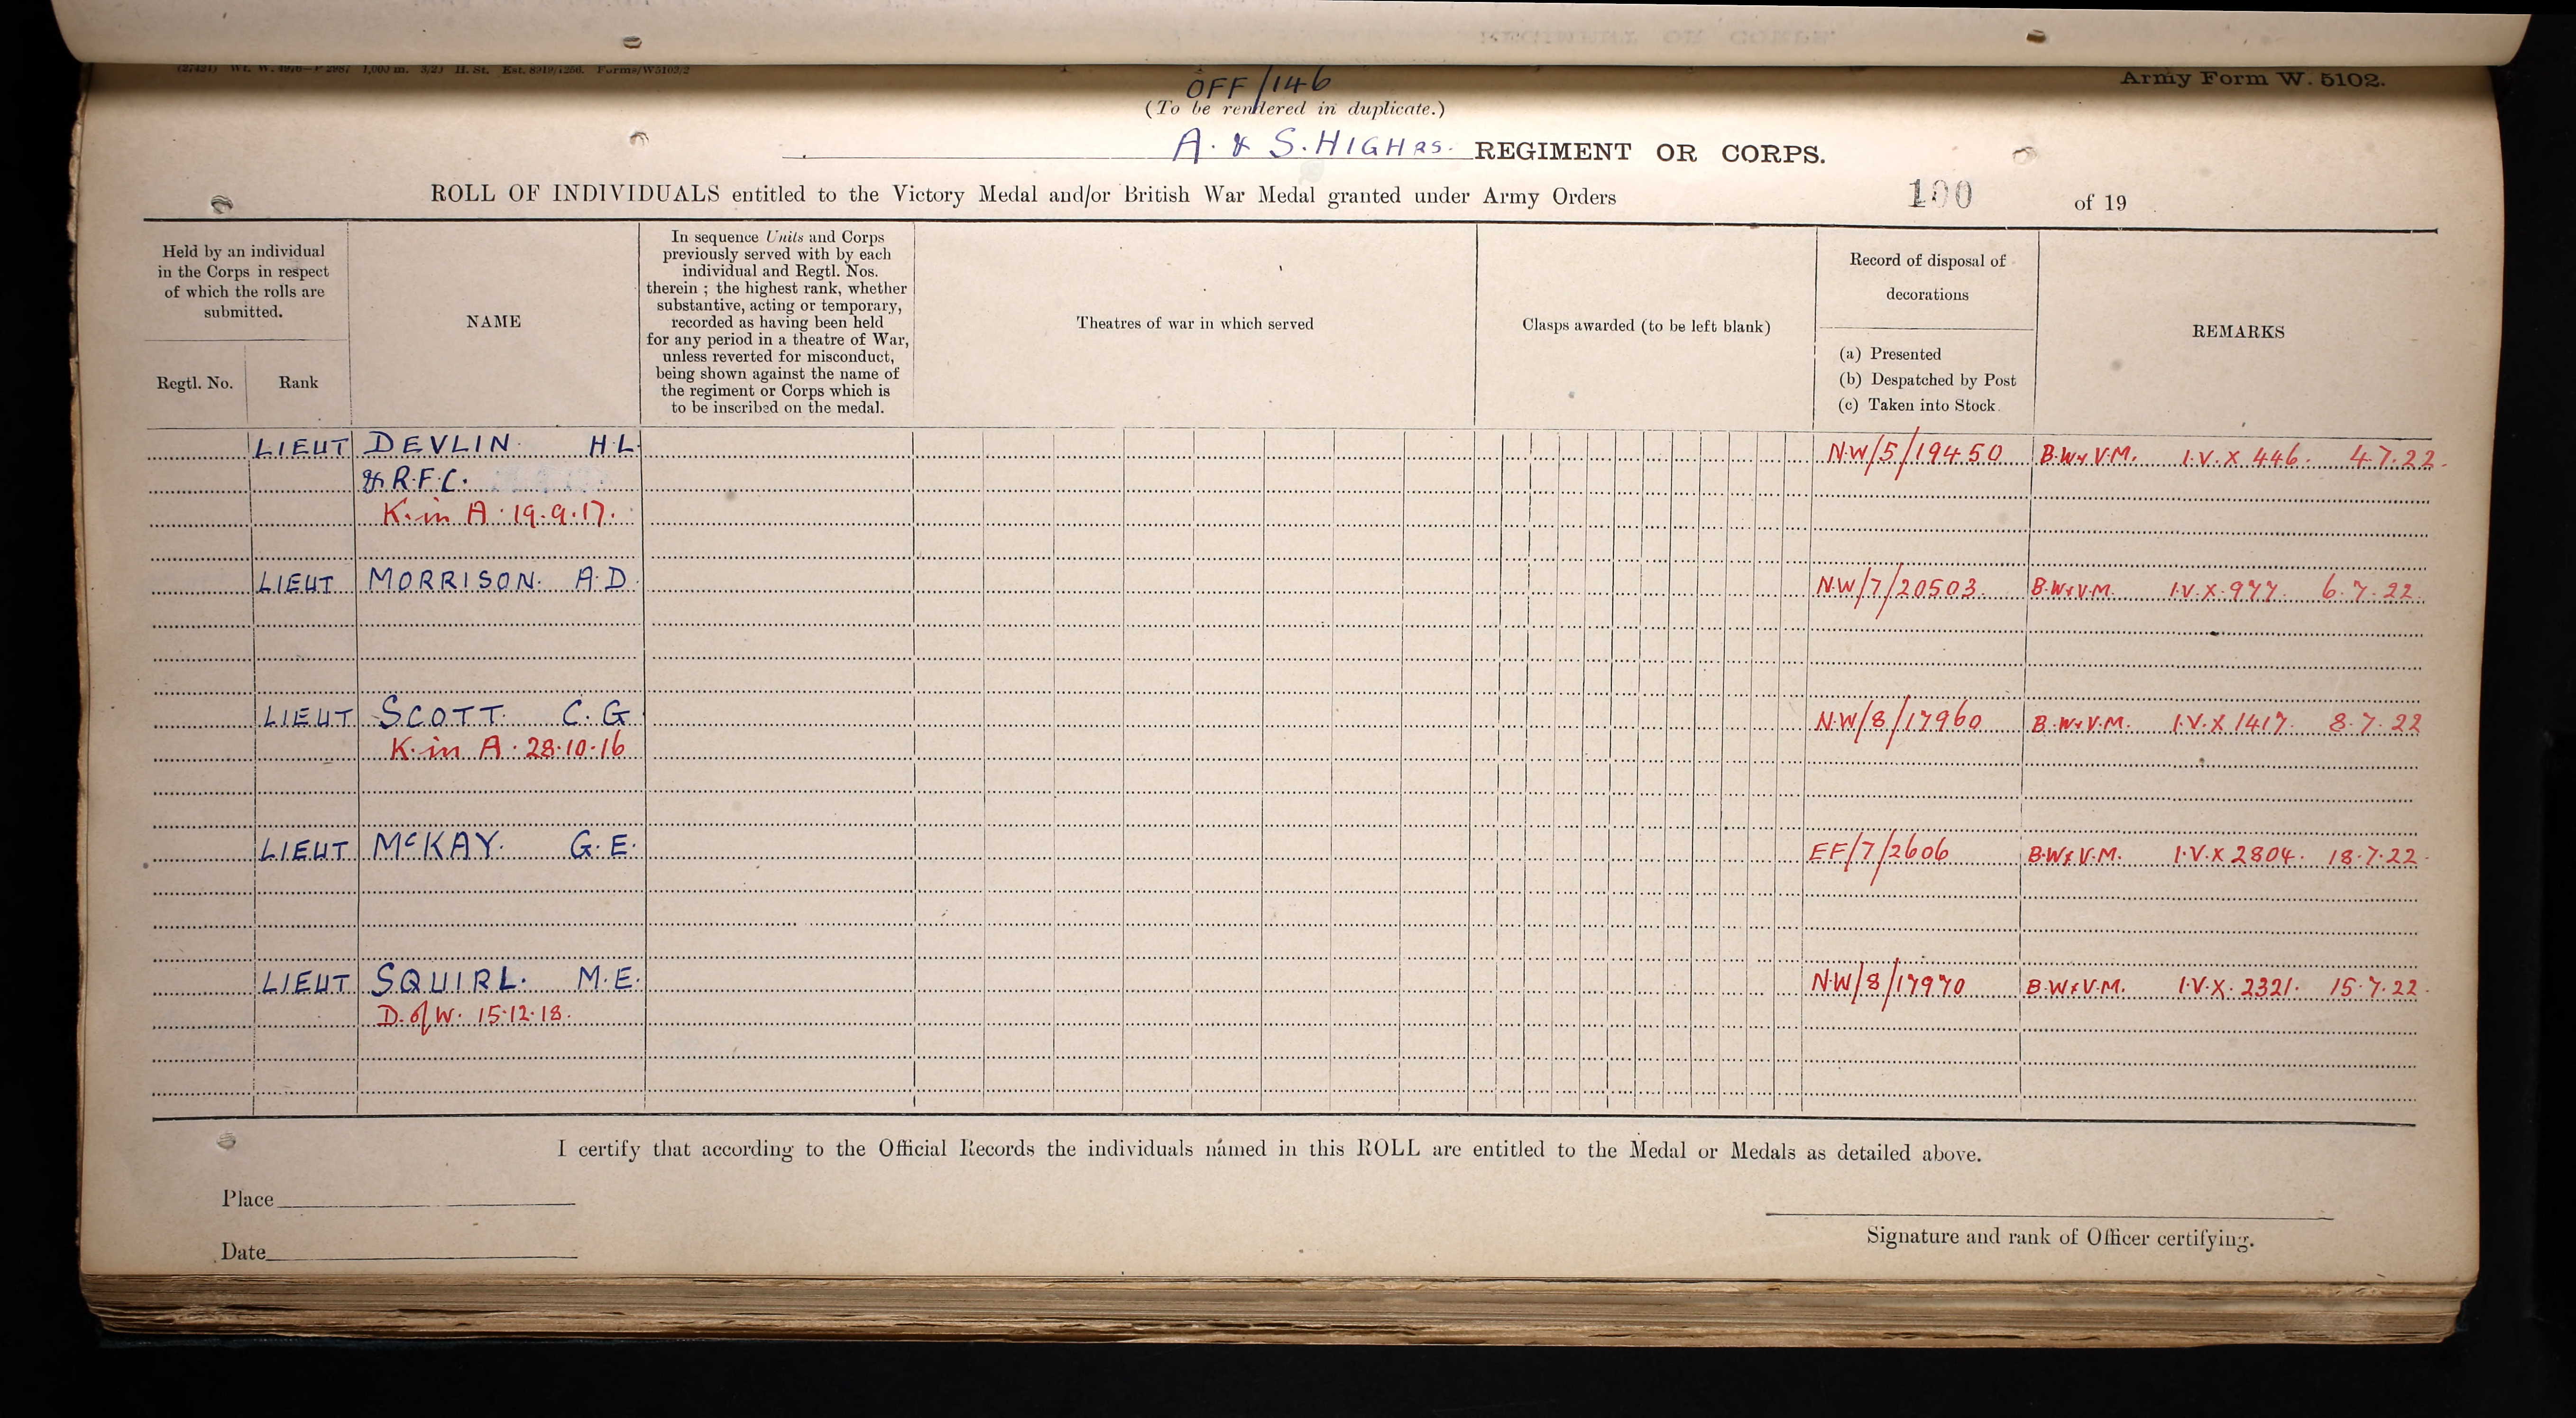 (27421) Wt. W. 4976—P 2987 1,000 m. 3/23 H. St. Est. 8919/1256. Forms/W5102/2
Army Form W. 5102.
OFF/146
(To be rendered in duplicate.)
A. & S. HIGHRS. REGIMENT OR CORPS.
ROLL OF INDIVIDUALS entitled to the Victory Medal and/or British War Medal granted under Army Orders 100 of 19
Held by an individual
in the Corps in respect
of which the rolls are
submitted.
Regtl. No. Rank
NAME
In sequence Units and Corps
previously served with by each
individual and Regtl. Nos.
therein ; the highest rank, whether
substantive, acting or temporary,
recorded as having been held
for any period in a theatre of War,
unless reverted for misconduct,
being shown against the name of
the regiment or Corps which is
to be inscribed on the medal.
Theatres of war in which served
Clasps awarded (to be left blank)
Record of disposal of
decorations
(a) Presented
(b) Despatched by Post
(c) Taken into Stock
REMARKS
LIEUT DEVLIN. H.L. N.W/5/19450 B.W&V.M. I.V.X 446. 4.7.22.
& R.F.C.
K. in A. 19.9.17.
LIEUT MORRISON. A.D. N.W/7/20503 B.W&V.M. I.V.X.977. 6.7.22.
LIEUT SCOTT. C.G N.W/8/17960 B.W&V.M. I.V.X 1417. 8.7.22
K. in A. 28.10.16
LIEUT McKAY. G.E. EF/7/2606 B.W&V.M. I.V.X 2804. 18.7.22.
LIEUT SQUIRL. M.E. N.W/8/17970 B.W&V.M. I.V.X. 2321. 15.7.22.
D. of W. 15.12.18.
I certify that according to the Official Records the individuals named in this ROLL are entitled to the Medal or Medals as detailed above.
Place
Date
Signature and rank of Officer certifying.